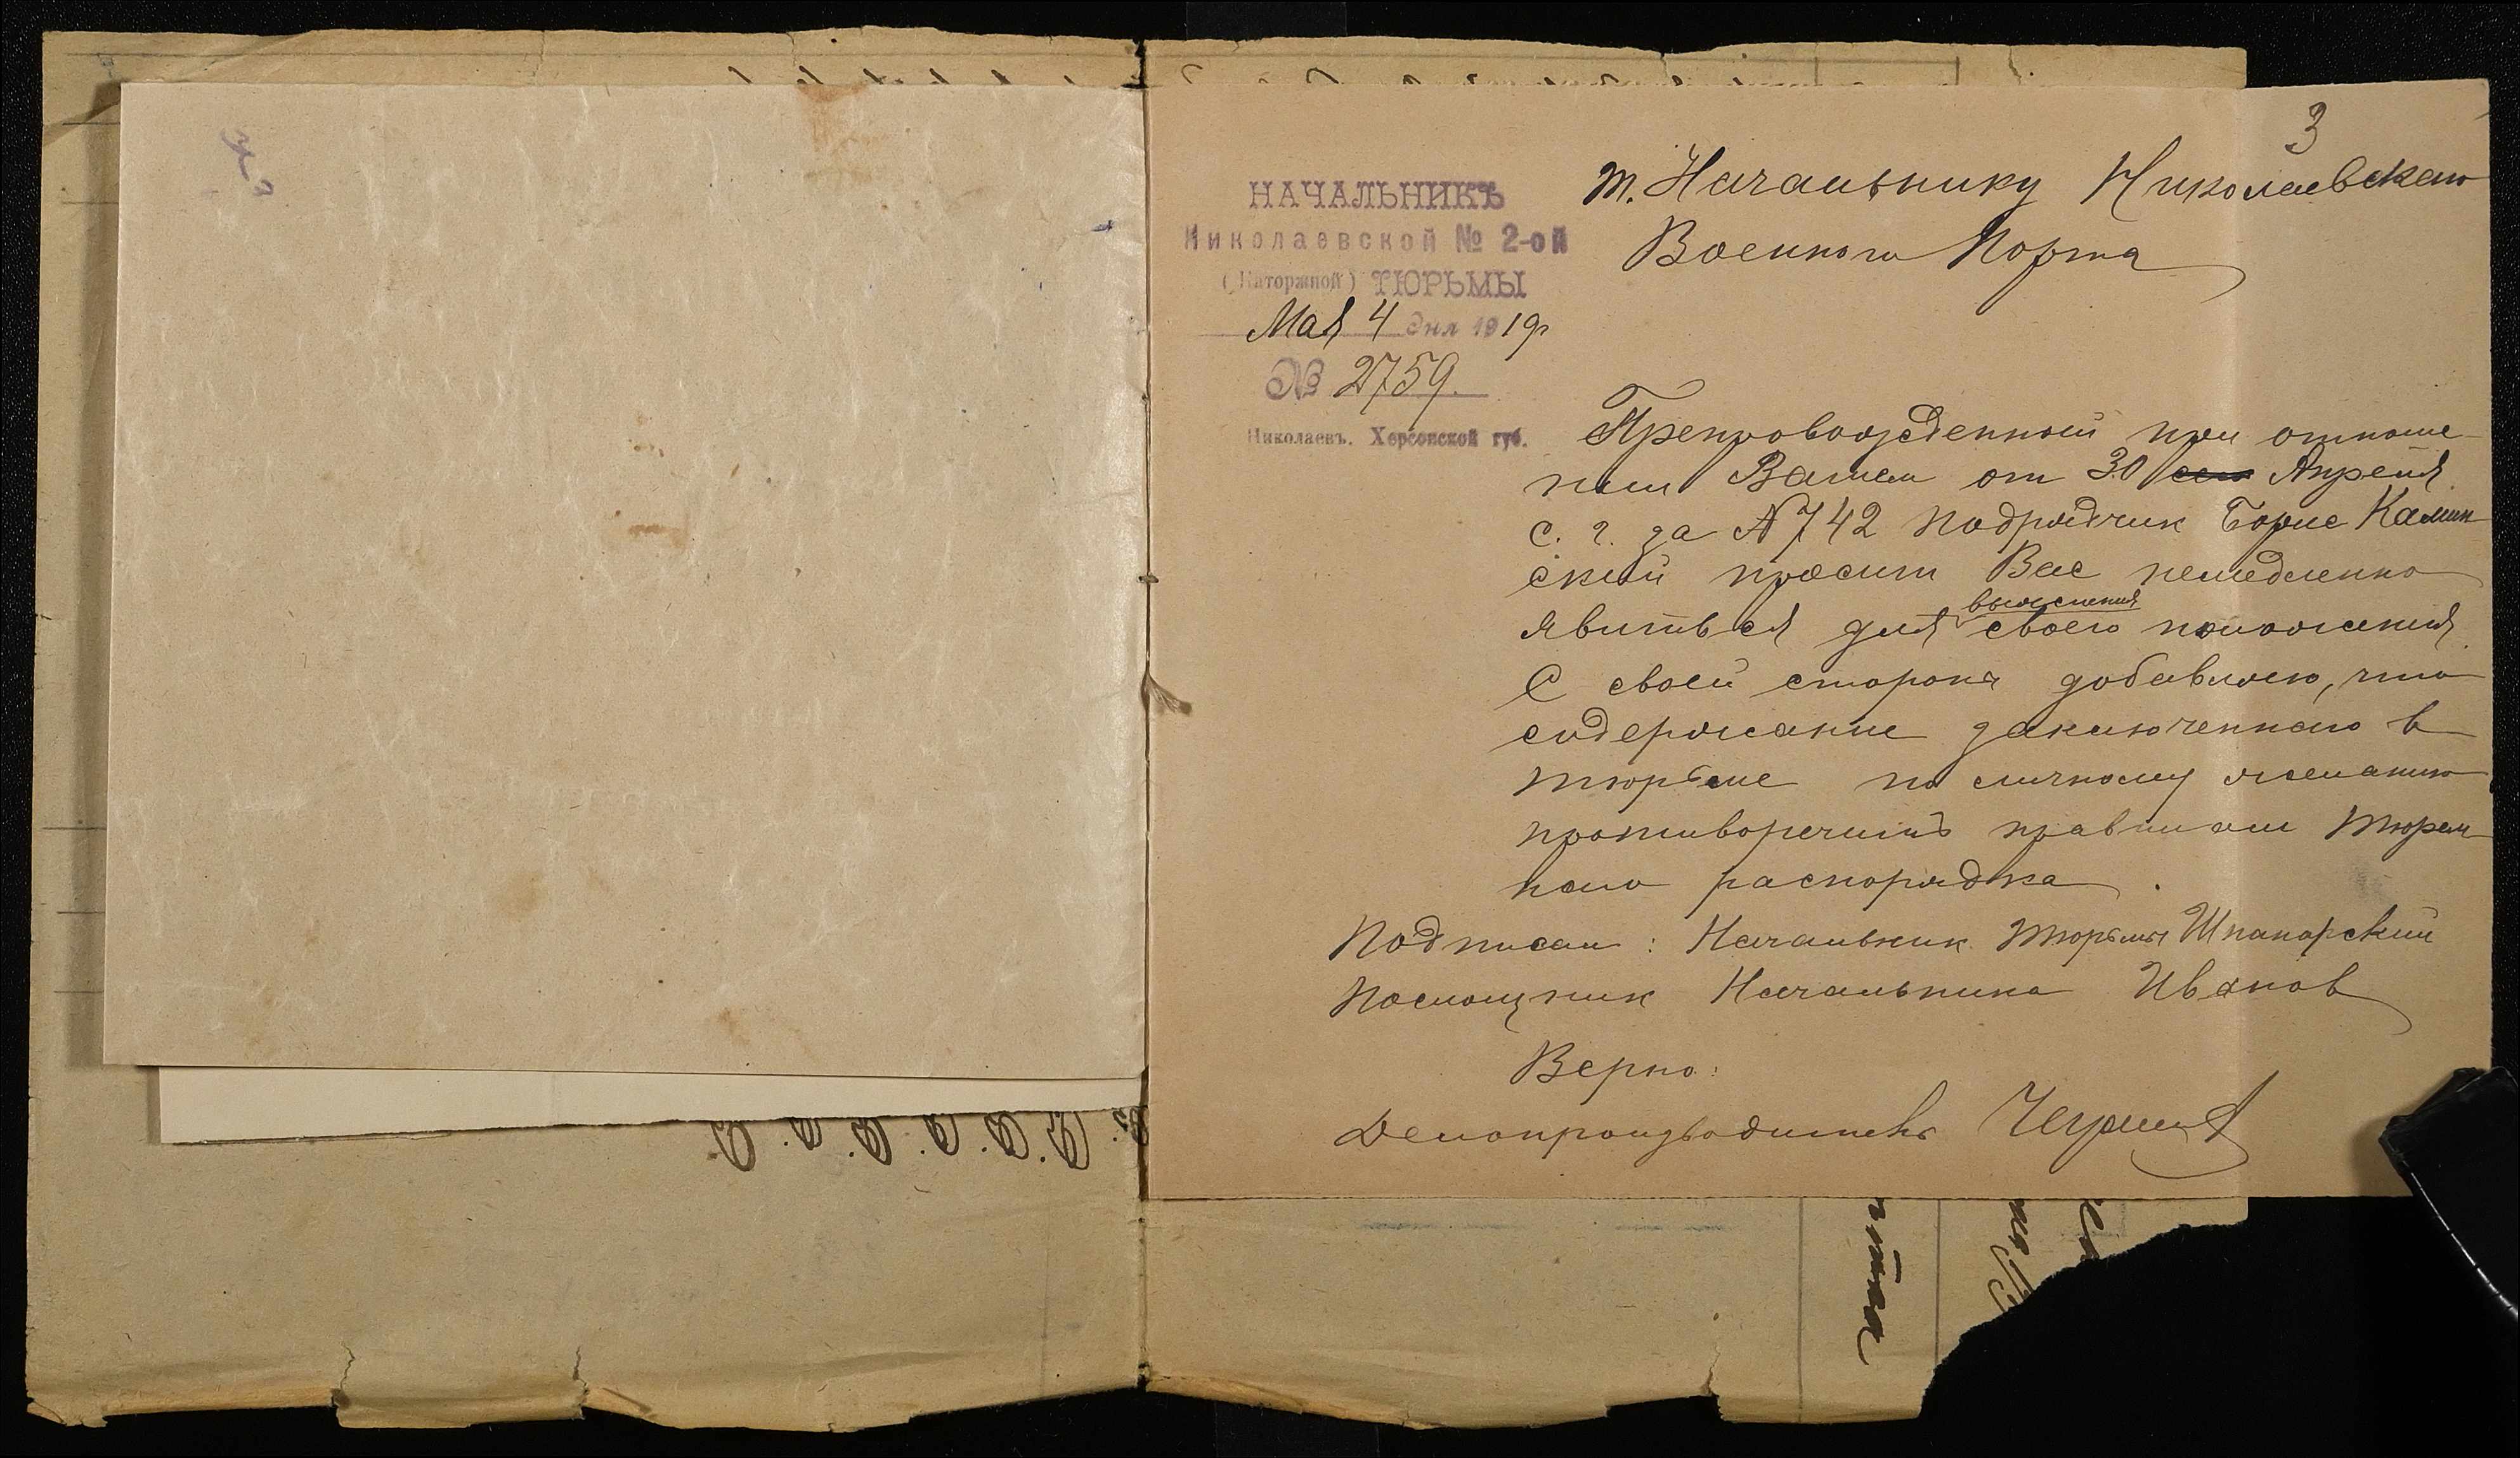 3
НАЧАЛЬНИКЪ
Николаевской № 2-ой
(Каторжной) ТЮРЬМЫ
Мая 4 дня 1919г
№ 2759.
Николаевъ. Херсонской губ.
т. Начальнику Николаевскаго
Военного Порта
Препровожденный при отноше-
нии Вашем от 30 сего Апреля
с. г. за № 742 подрядчик Борис Камин
ский просит Вас немедленно
явиться для выяснения своего положения.
С своей стороны добавляю, что
содержание заключенного в
тюрьме по личному желанию
противоречитъ правилам тюрем
ного распорядка.
Подписал: Начальник тюрьмы Шпанарский
Помощник Начальника Иванов
Верно:
Делопроизводитель